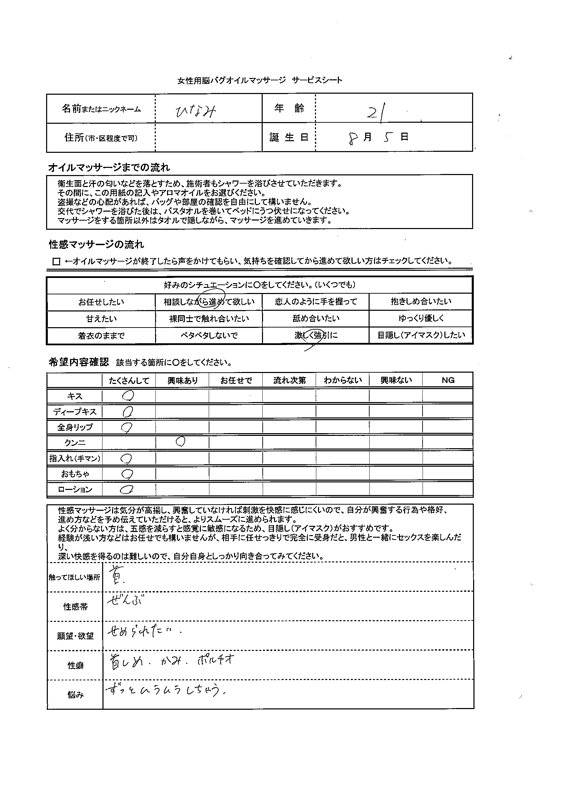 女性用脳バグオイルマッサージ サービスシート
名前またはニックネーム ひなみ 年 齢 21
住所(市・区程度で可) 誕生日 8月 5日
オイルマッサージまでの流れ
衛生面と汗の匂いなどを落とすため、施術者もシャワーを浴びさせていただきます。
その間に、この用紙の記入やアロマオイルをお選びください。
盗撮などの心配があれば、バッグや部屋の確認を自由にして構いません。
交代でシャワーを浴びた後は、バスタオルを巻いてベッドにうつ伏せになってください。
マッサージをする箇所以外はタオルで隠しながら、マッサージを進めていきます。
性感マッサージの流れ
□ ←オイルマッサージが終了したら声をかけてもらい、気持ちを確認してから進めて欲しい方はチェックしてください。
好みのシチュエーションに〇をしてください。(いくつでも)
お任せしたい 相談しながら進めて欲しい 恋人のように手を握って 抱きしめ合いたい
甘えたい 裸同士で触れ合いたい 舐め合いたい ゆっくり優しく
着衣のままで ベタベタしないで 激しく強引に 目隠し(アイマスク)したい
希望内容確認 該当する箇所に〇をしてください。
たくさんして 興味あり お任せで 流れ次第 わからない 興味ない NG
キス 〇
ディープキス 〇
全身リップ 〇
クンニ 〇
指入れ(手マン) 〇
おもちゃ 〇
ローション 〇
性感マッサージは気分が高揚し、興奮していなければ刺激を快感に感じにくいので、自分が興奮する行為や格好、
進め方などを予め伝えていただけると、よりスムーズに進められます。
よく分からない方は、五感を減らすと感覚に敏感になるため、目隠し(アイマスク)がおすすめです。
経験が浅い方などはお任せでも構いませんが、相手に任せっきりで完全に受身だと、男性と一緒にセックスを楽しんだ
り、
深い快感を得るのは難しいので、自分自身としっかり向き合ってみてください。
触ってほしい場所 首
性感帯 ぜんぶ
願望・欲望 せめられたい.
性癖 首しめ. かみ. ポルチオ
悩み ずっとムラムラしちゃう.